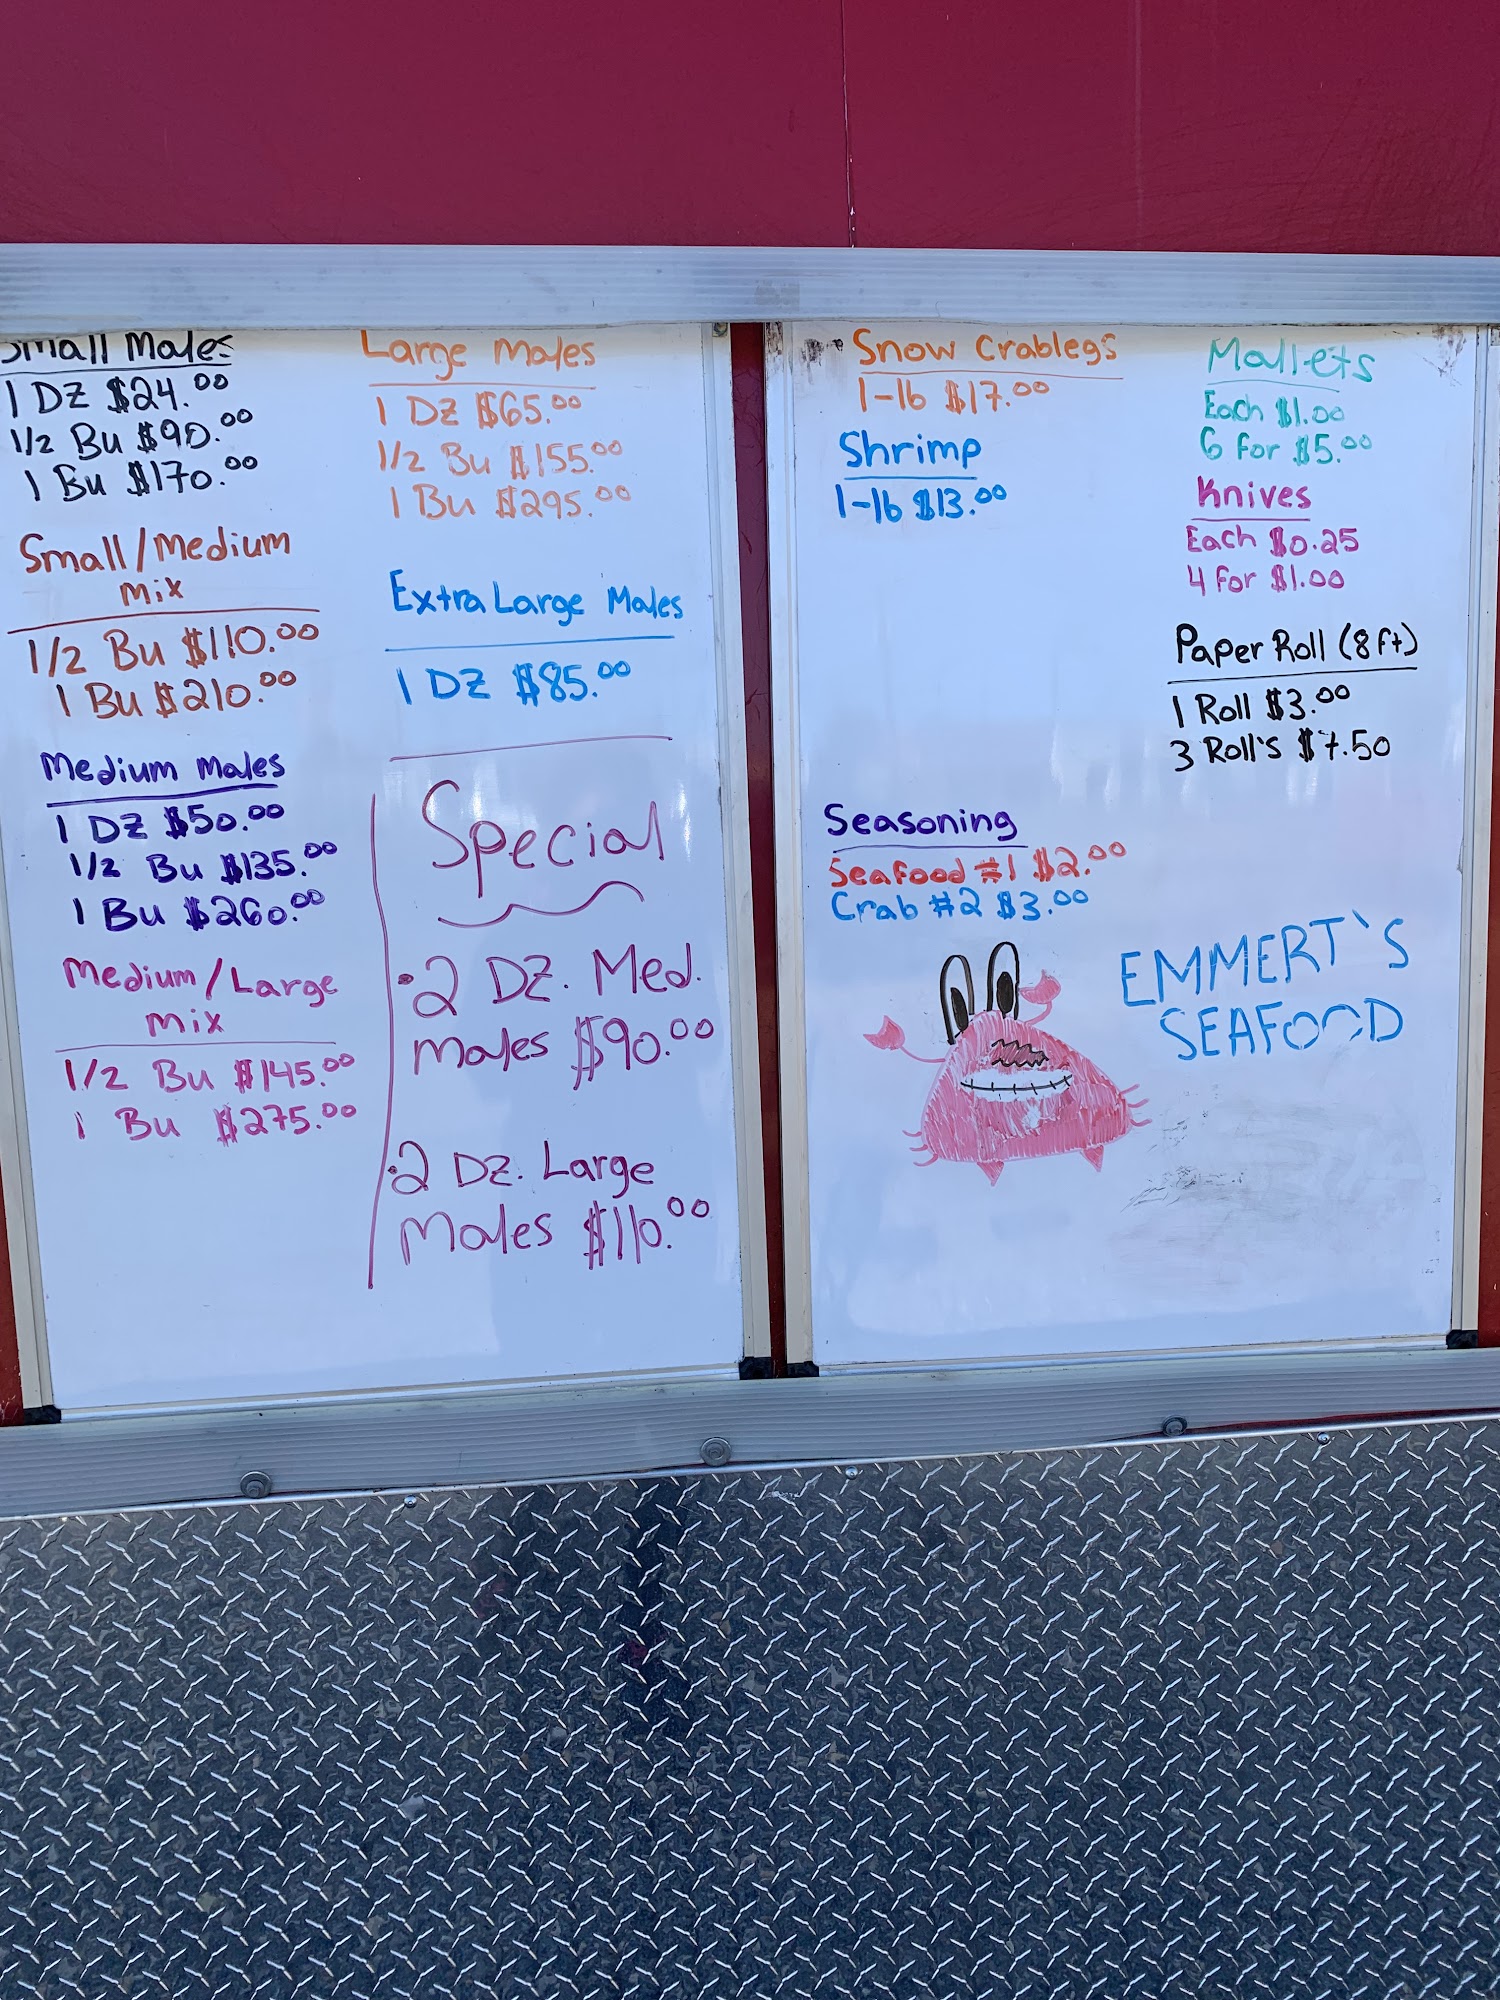 Small Males
1 DZ $24.00
1/2 Bu $90.00
1 Bu $170.00
Small/Medium
mix
1/2 Bu $110.00
1 Bu $210.00
Medium Males
1 DZ $50.00
1/2 Bu $135.00
1 Bu $260.00
Medium/Large
mix
1/2 Bu $145.00
1 Bu $275.00
Large Males
1 DZ $65.00
1/2 Bu $155.00
1 Bu $295.00
Extra Large Males
1 DZ $85.00
Special
• 2 DZ. Med.
Males $90.00
• 2 DZ. Large
Males $110.00
Snow Crablegs
1-lb $17.00
Shrimp
1-lb $13.00
Mallets
Each $1.00
6 for $5.00
Knives
Each $0.25
4 for $1.00
Paper Roll (8ft)
1 Roll $3.00
3 Roll's $7.50
Seasoning
Seafood #1 $2.00
Crab #2 $3.00
EMMERT`S
SEAFOOD